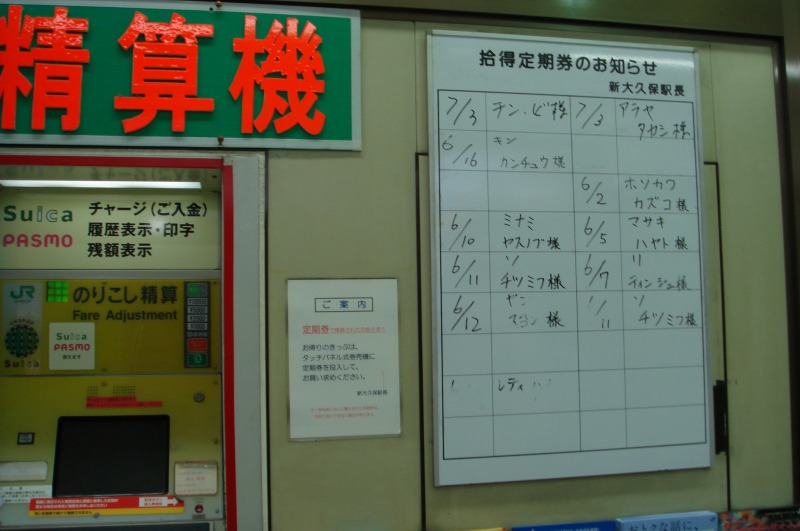 精算機
Suica
PASMO
チャージ(ご入金)
履歴表示・印字
残額表示
JR
のりこし精算
Fare Adjustment
Suica
PASMO
使えます
Suica
ご案内
お帰りのきっぷは、
タッチパネル式券売機に
定期券を投入して、
お買い求めください。
新大久保駅長
拾得定期券のお知らせ
新大久保駅長
7/3 チン.ビ様 7/3 アラヤ
タカシ様
6/16 キン
カンチュウ様
6/2 ホソカワ
カズコ様
6/10 ミナミ
ヤスノブ様
6/5 マサキ
ハヤト様
6/11 ソ
チヅミフ様
6/7 リ
ティンジュ様
6/12
様
11 ソ
チヅミフ様
レディ